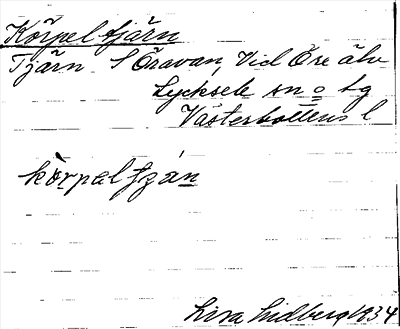 Körpeltjärn
Tjärn S Öravan, Vid Öre älv
Lycksele sn o lg
Västerbottens l
körpaltján
Lisa Lidberg 1934